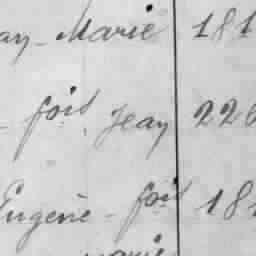 ay - Marie 181
- fois Jean 226
Eugène - fois 181
Marie